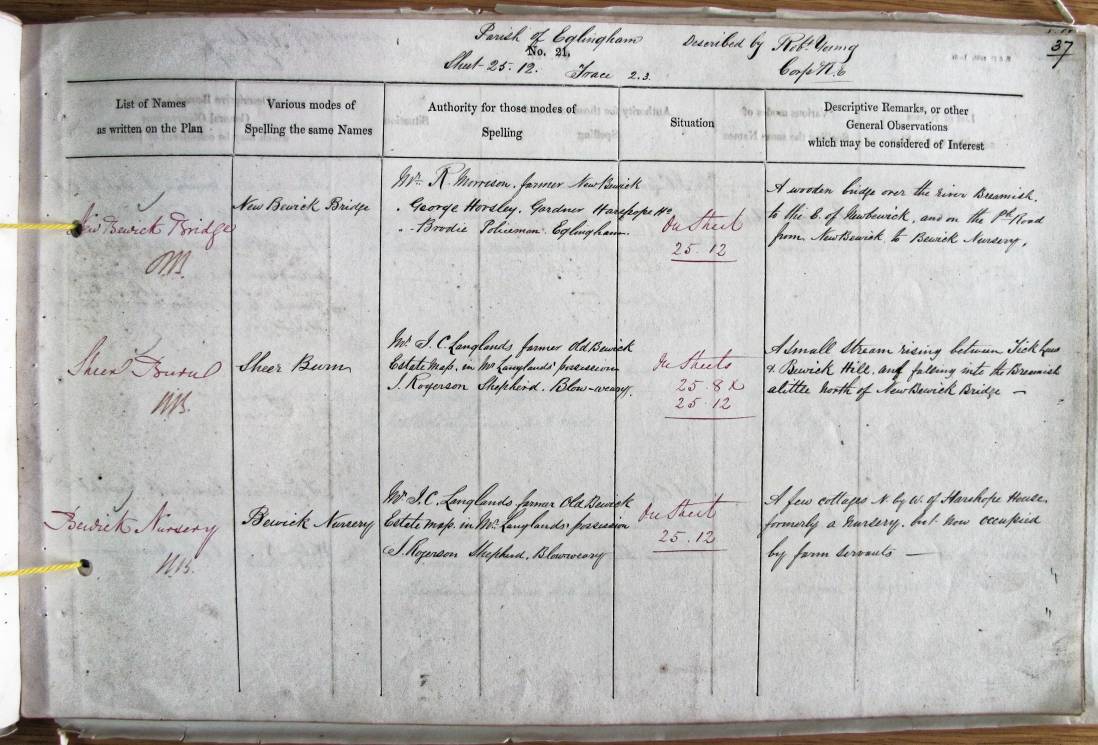 Parish of Eglingham
No. 21.
Sheet 25.12. Trace 2.3.
Described by Robt. Young
Corpl R.E
37
List of Names
as written on the Plan
Various modes of
Spelling the same Names
Authority for those modes of
Spelling
Situation
Descriptive Remarks, or other
General Observations
which may be considered of Interest
New Bewick Bridge
New Bewick Bridge
Mr. R. Morrison. farmer New Bewick
" George Horsley. Gardner Harehope Ho
" Brodie Policeman Eglingham
On Sheet
25.12
A wooden bridge over the river Breamish.
to the E. of Newbewick, and on the Ph. Road
from New Bewick to Bewick Nursery.
Sheer Burn
Sheer Burn
Mr. J. C. Langlands farmer Old Bewick
Estate Map. in Mr Langlands' possession
J. Rogerson Shepherd. Blow-weary.
On Sheets
25.8 &
25.12
A Small Stream rising between Tick Laws
& Bewick Hill, and falling into the Breamish
a little North of New Bewick Bridge —
Bewick Nursery
Bewick Nursery
Mr J. C. Langlands farmer Old Bewick
Estate map. in Mr. Langlands' possession
J. Rogerson Shepherd. Blowweary
On Sheet
25.12
A few cottages N. by W. of Harehope House.
formerly a nursery. but now occupied
by farm servants —